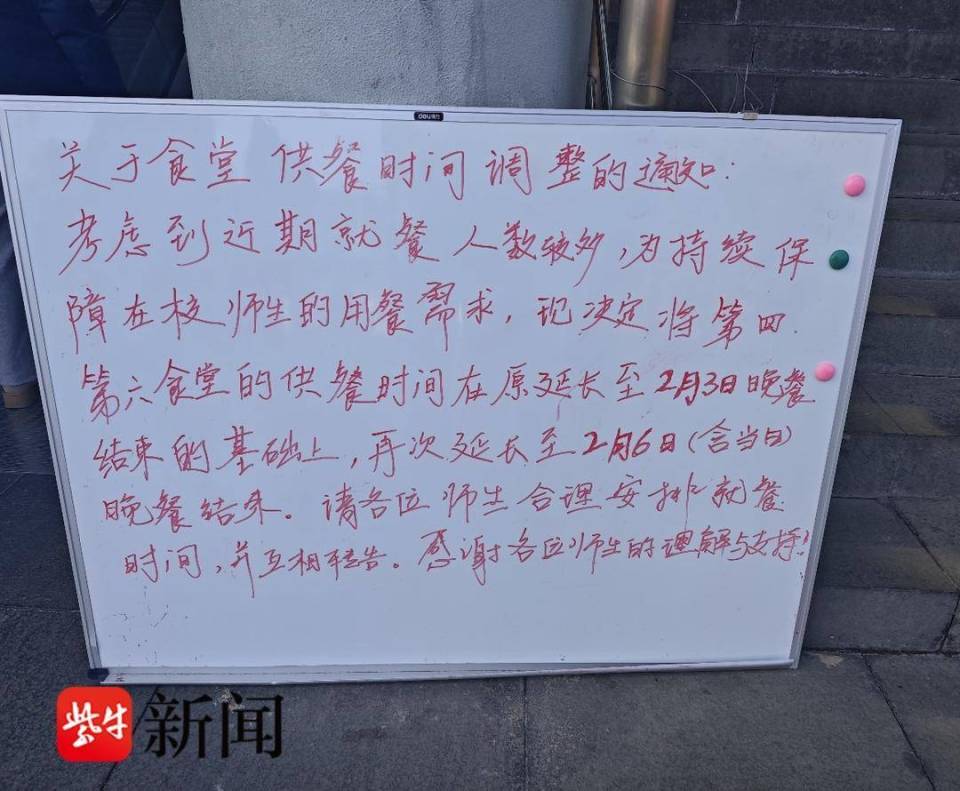 deli得力
关于食堂供餐时间调整的通知:
考虑到近期就餐人数较多,为持续保
障在校师生的用餐需求,现决定将第四.
第六食堂的供餐时间在原延长至2月3日晚餐
结束的基础上,再次延长至2月6日(含当日)
晚餐结束。请各位师生合理安排就餐
时间,并互相转告。感谢各位师生的理解与支持!
紫牛新闻